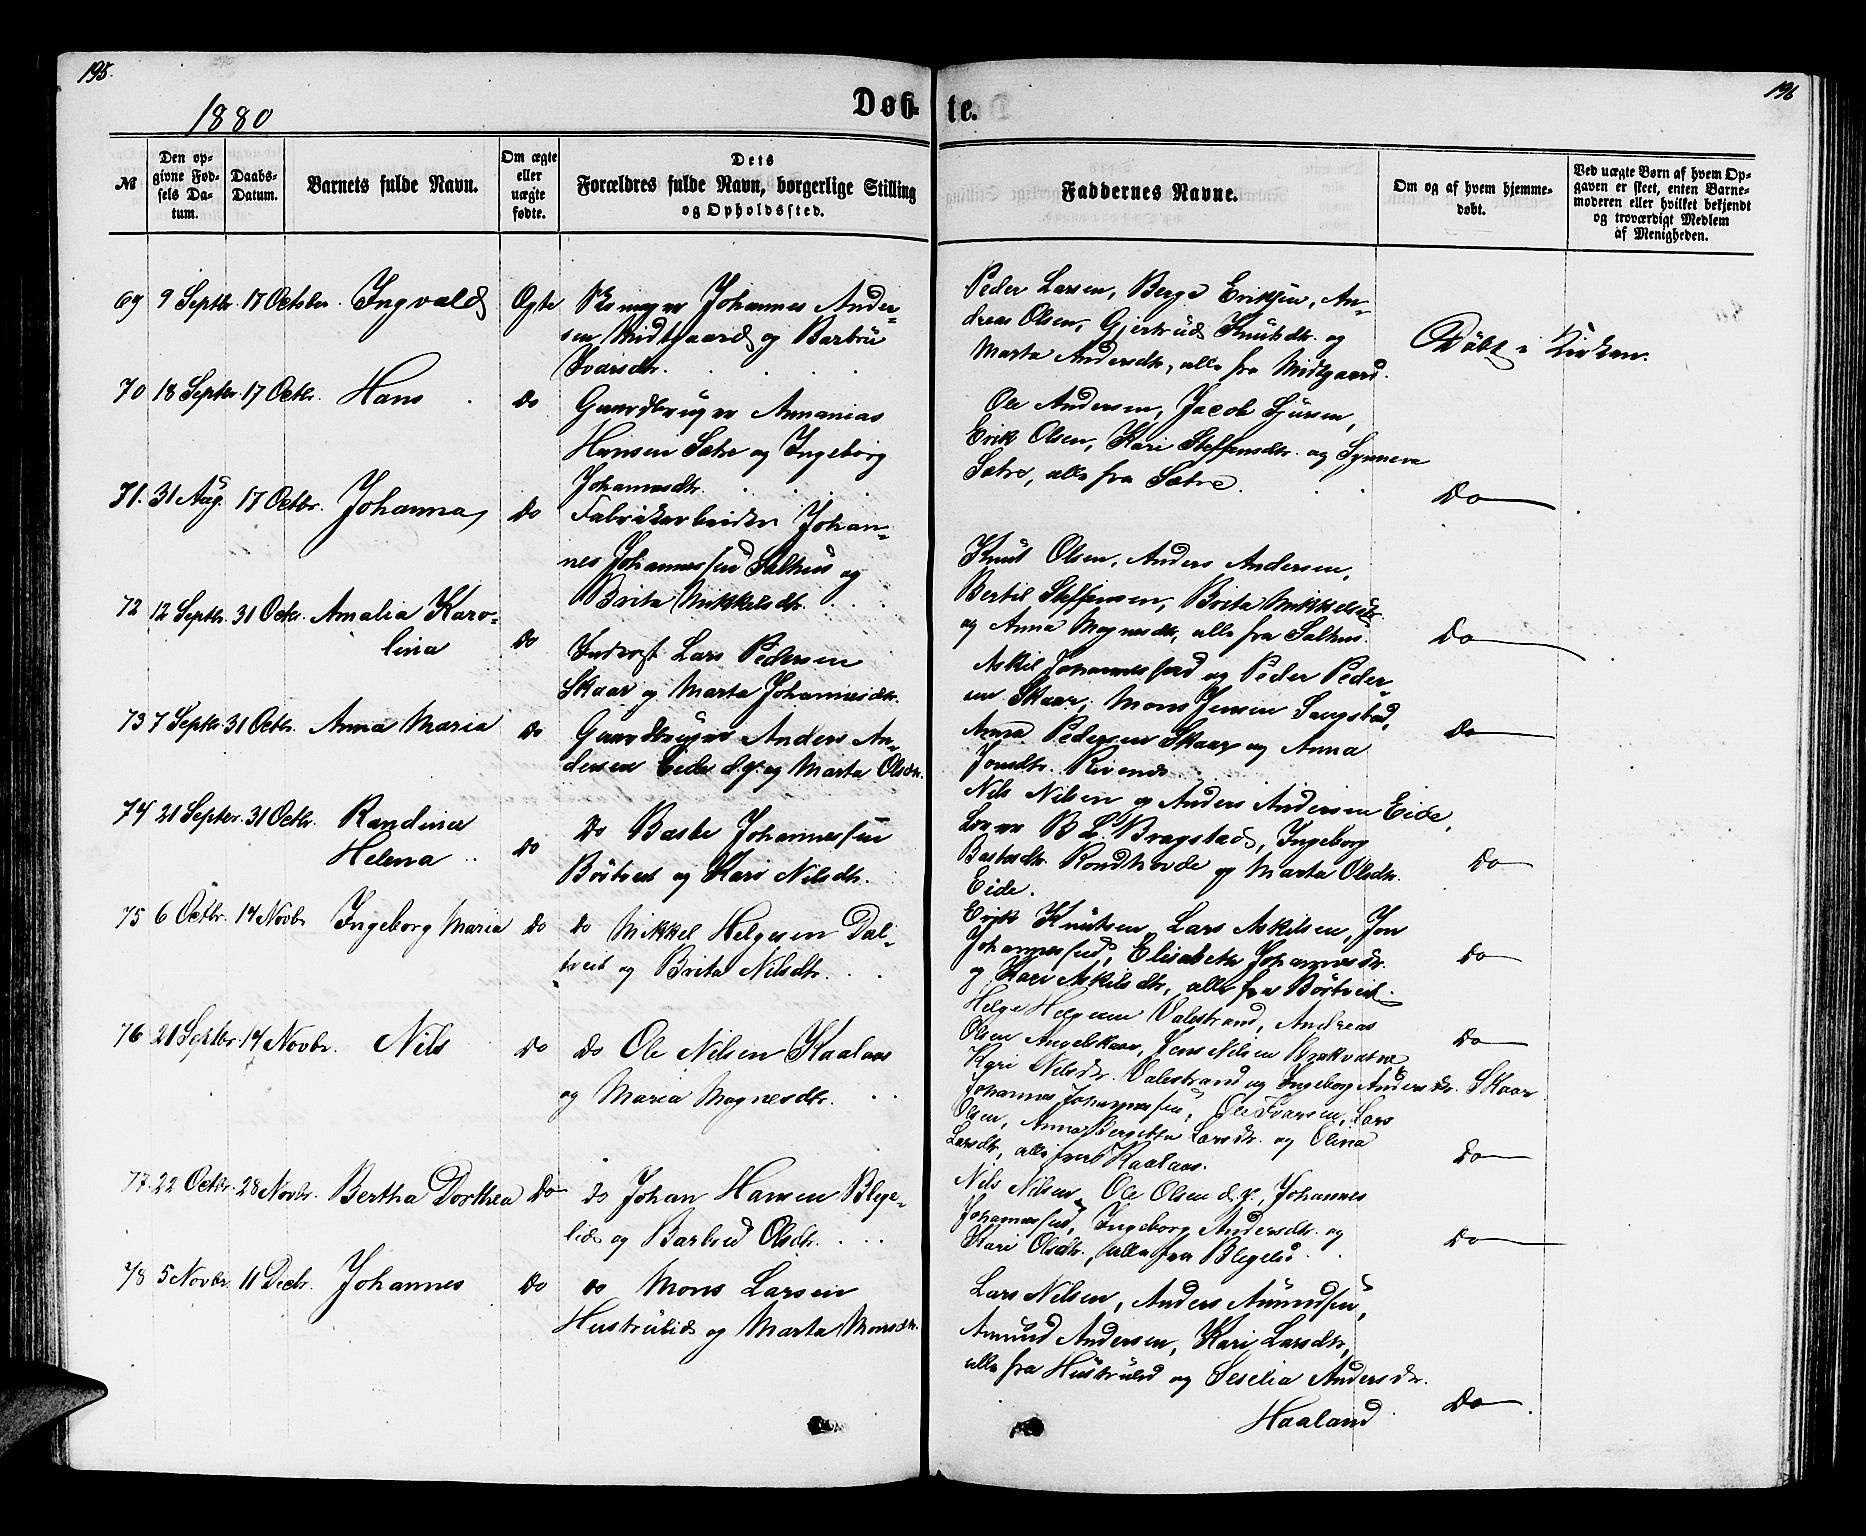 195.
1880
Døb-
№
Den op-
givne Fød-
sels Da-
tum.
Daabs-
Datum.
Barnets fulde Navn.
Om ægte
eller
uægte
fødte.
Dets
Forældres fulde Navn, borgerlige Stilling
og Opholdssted.
69 9 Septbr. 17 October. Ingvald Ægte Johannes Ander-
sen Midtgaard og Barbru
Ivarsdtr.
70 18 Septbr. 17 Octbr. Hans Do Gaardbruger Annanias
Hansen Sætre og Ingeborg
Johannesdtr.
71. 31 Aug. 17 Octbr. Johanna Do Fabrikarbeider Johan-
nes Johannessen Salhus og
Brita Mikkelsdtr.
72 12 Septbr. 31 Octbr. Amalia Karo-
lina Do Inderst Lars Pedersen
Skaar og Marta Johannesdtr.
73 7 Septbr. 31 Octbr. Anna Maria Do Gaardbruger Anders An-
dersen Eide d.y. og Marta Olsdtr.
74 21 Septbr. 31 Octbr. Randina
Helena Do Do Baste Johannessen
Börtveit og Kari Nilsdtr.
75 6 Octbr. 14 Novbr Ingeborg Maria Do Do Mikkel Helgesen Dal-
tveit og Brita Nilsdtr.
76 21 Septbr. 14 Novbr. Nils Do Do Ole Nilsen Kaalaas
og Maria Magnesdtr.
77. 22 Octbr. 28 Novbr. Bertha Dorthea Do Do Johan Hansen Blege-
lid og Barbru Olsdtr.
78 5 Novbr. 11 Decbr. Johannes Do Do Mons Larsen
Hustrulid og Marta Monsdtr.
196
te.
Faddernes Navne.
Om og af hvem hjemme-
døbt.
Ved uægte Børn af hvem Op-
gaven er skeet, enten Barne-
moderen eller hvilket bekjendt
og troværdigt Medlem
af Menigheden.
Peder Larsen, Berge Eriksen, An-
dreas Olsen, Gjertrud Knutsdtr. og
Marta Andersdtr, alle fra Midtgaard.
Döbt i Kirken.
Ole Andersen, Jacob Sjursen,
Erik Olsen, Kari Steffensdtr. og Synneva
Sætre, alle fra Sætre.
Do
Knut Olsen, Anders Andersen,
Bertil Steffensen, Brita Mikkelsdtr.
og Anna Magnesdtr, alle fra Salhus.
Do
Askil Johannessen og Peder Peder-
sen Skaar, Mons Jensen Sangstad,
Anna Pedersen Skaar og Anna
Jonsdtr. Rivenes
Do
Nils Nilsen og Anders Andersen Eide,
B. L. Bragstad, Ingeborg
Bastesdtr. Rondhovde og Marta Olsdtr.
Eide.
Do
Erik Knutsen, Lars Askilsen, Jon
Johannessen, Elisabeth Johannesdtr.
og Kari Askilsdtr, alle fra Börtveit.
Do
Helge Helgesen Valestrand, Andreas
Olsen Angelskaar, Jens Nilsen Brækvatne
Kari Nilsdtr. Valestrand og Ingeborg Andersdtr. Skaar
Do
Johannes Johannessen, Ole Ivarsen, Lars
Olsen, Anna Bergitta Larsdtr. og Olina
Larsdtr, alle fra Kaalaas.
Do
Nils Nilsen, Ole Olsen d.y., Johannes
Johannessen, Ingeborg Andersdtr. og
Kari Olsdtr, alle fra Blegelid.
Do
Lars Nilsen, Anders Amundsen,
Amund Andersen, Kari Larsdtr,
alle fra Hustrulid og Sesilia Andersdtr.
Haaland
Do